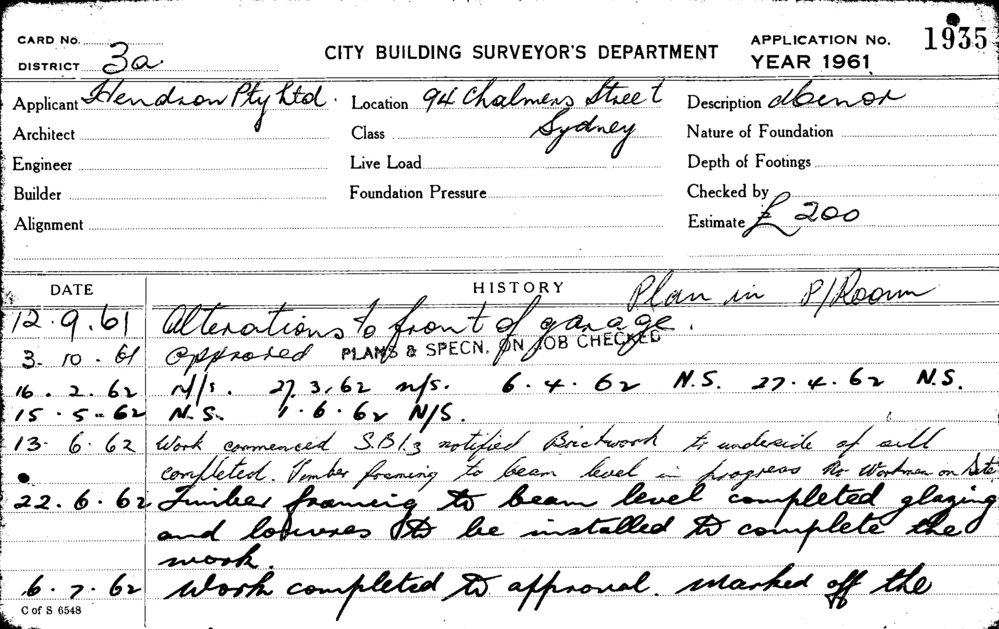 CARD No.
DISTRICT 3a.
CITY BUILDING SURVEYOR'S DEPARTMENT
APPLICATION No. 1935
YEAR 1961
Applicant Hendson Pty Ltd. Location 94 Chalmers Street Description
Architect Class Sydney Nature of Foundation
Engineer Live Load Depth of Footings
Builder Foundation Pressure Checked by
Alignment Estimate £ 200
DATE HISTORY Plan in P/Room
12.9.61 Alterations to front of garage.
3.10.61 approved PLANS & SPECN. ON JOB CHECKED
16.2.62 N/S. 27.3.62 N/S. 6.4.62 N.S. 27.4.62 N.S.
15.5.62 N.S. 1.6.62 N/S.
13.6.62 Work commenced notified Brickwork to underside of sill
completed. Timber framing to beam level in progress No Workmen on Site
22.6.62 Timber framing to beam level completed glazing
and louvres to be installed to complete the
work.
6.7.62 Work completed to approval. marked off the
C of S 6548